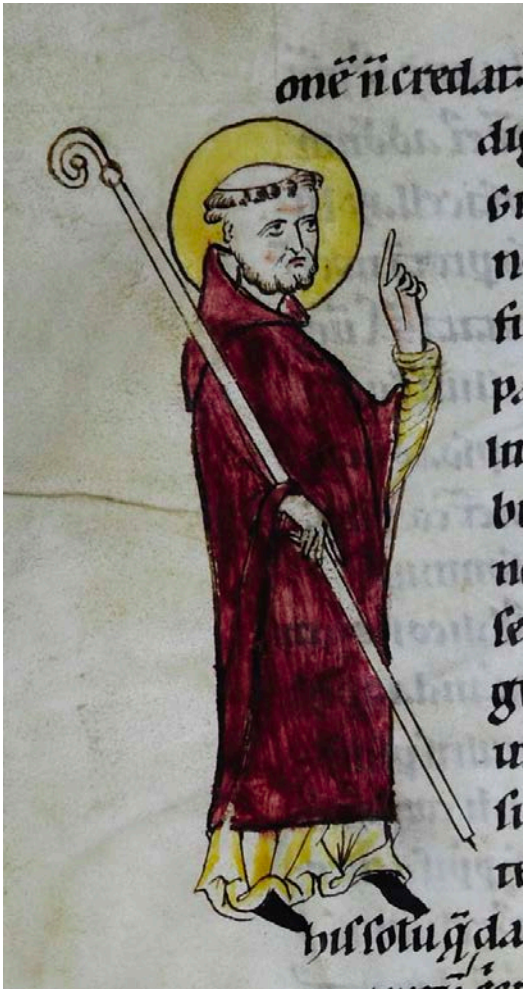 onē n̄ credat.
dig
Gr
n
fi
pa
In
br
ne
se
gr
u
su
te
his solū q̄ da